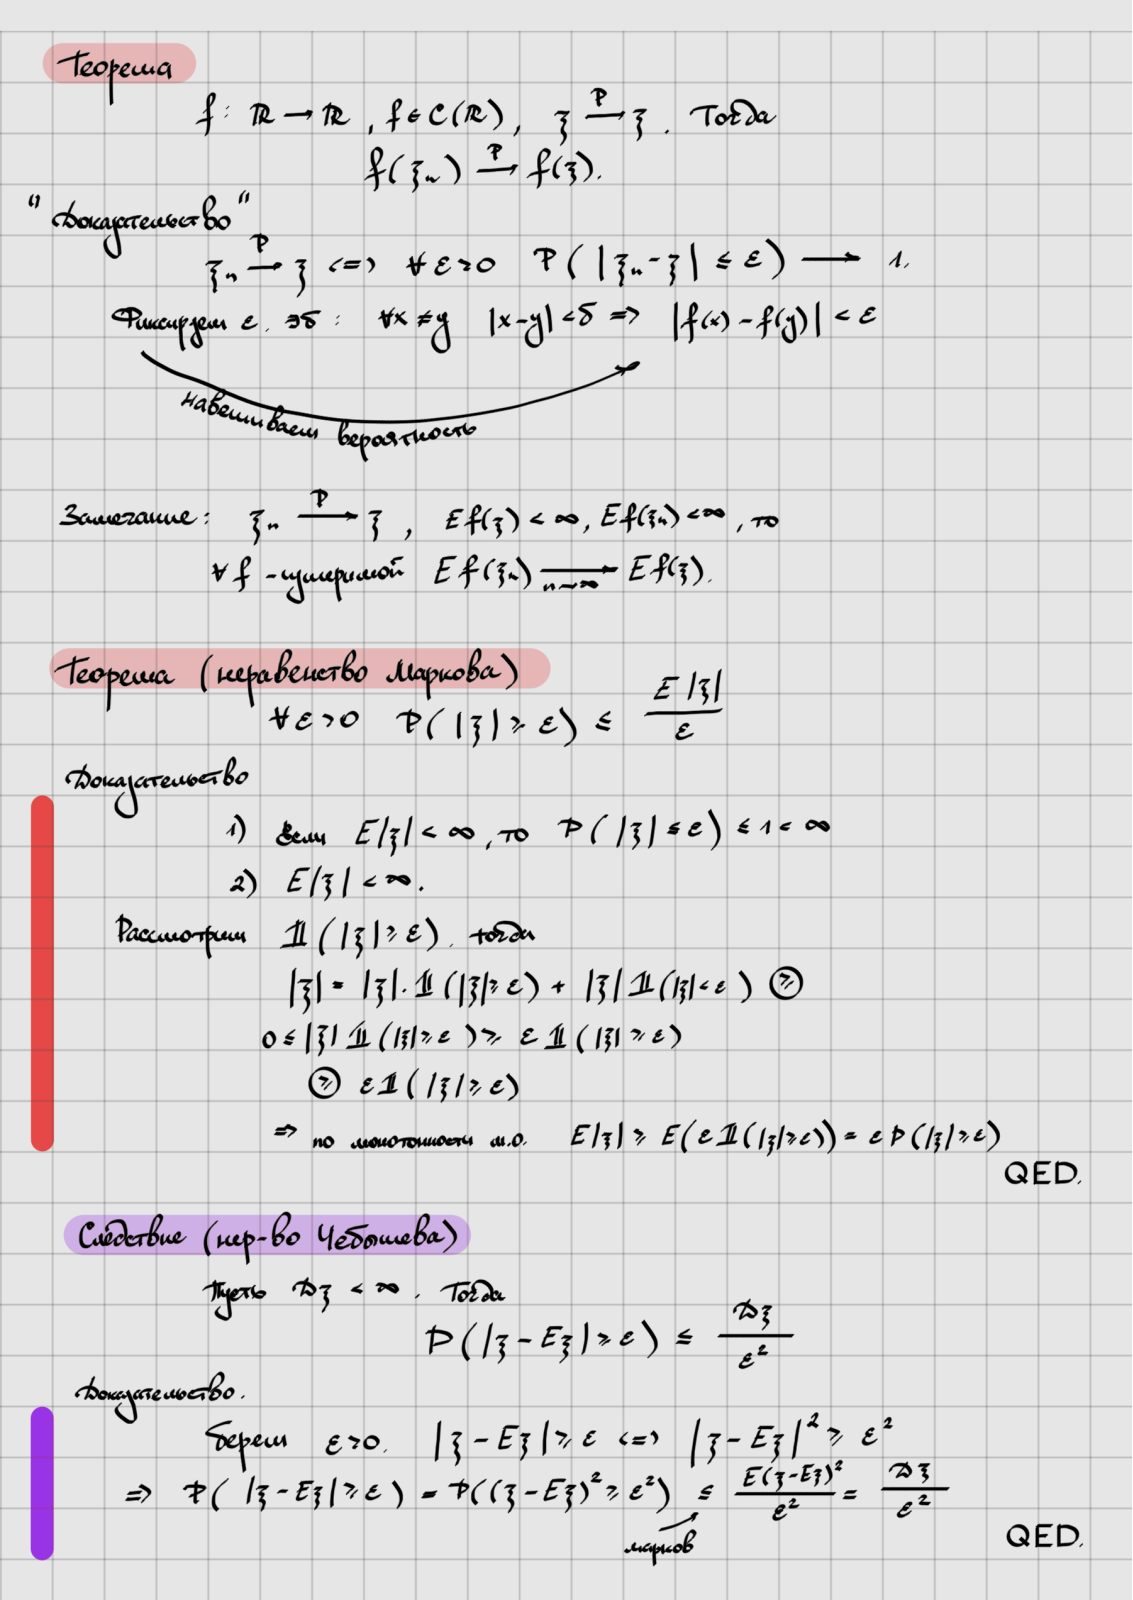 Теорема
f: ℝ → ℝ, f ∈ C(ℝ), ξ →^P ξ. Тогда
f(ξₙ) →^P f(ξ).
"Доказательство"
ξₙ →^P ξ <=> ∀ε>0 P(|ξₙ-ξ| ≤ ε) → 1.
Фиксируем ε. ∃δ: ∀x≠y |x-y|<δ => |f(x)-f(y)|<ε
навешиваем вероятность
Замечание: ξₙ →^P ξ, Ef(ξ)<∞, Ef(ξₙ)<∞, то
∀f - Ef(ξₙ) →_{n→∞} Ef(ξ).
Теорема (неравенство Маркова)
∀ε>0 P(|ξ| ≥ ε) ≤ E|ξ| / ε
Доказательство
1) Если E|ξ|<∞, то P(|ξ| ≤ ε) ≤ 1 < ∞
2) E|ξ|<∞.
Рассмотрим 𝟙(|ξ| ≥ ε). тогда
|ξ| = |ξ|·𝟙(|ξ| ≥ ε) + |ξ|𝟙(|ξ|<ε) ⩾
0 ≤ |ξ|𝟙(|ξ| ≥ ε) ≥ ε𝟙(|ξ| ≥ ε)
⩾ ε𝟙(|ξ| ≥ ε)
=> по монотонности м.о. E|ξ| ≥ E(ε𝟙(|ξ| ≥ ε)) = εP(|ξ| ≥ ε)
QED.
Следствие (нер-во Чебышева)
Пусть Dξ < ∞. Тогда
P(|ξ - Eξ| ≥ ε) ≤ Dξ / ε²
Доказательство.
берем ε>0. |ξ - Eξ| ≥ ε <=> |ξ - Eξ|² ≥ ε²
=> P(|ξ - Eξ| ≥ ε) = P((ξ - Eξ)² ≥ ε²) ≤ E(ξ-Eξ)² / ε² = Dξ / ε²
марков
QED.